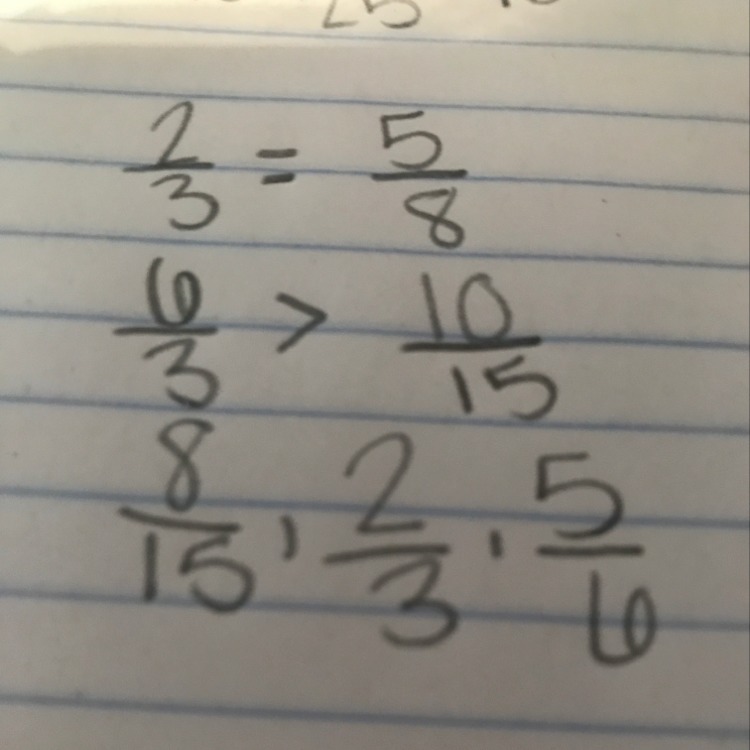 25
2/3 = 5/8
6/3 > 10/15
8/15, 2/3, 5/6